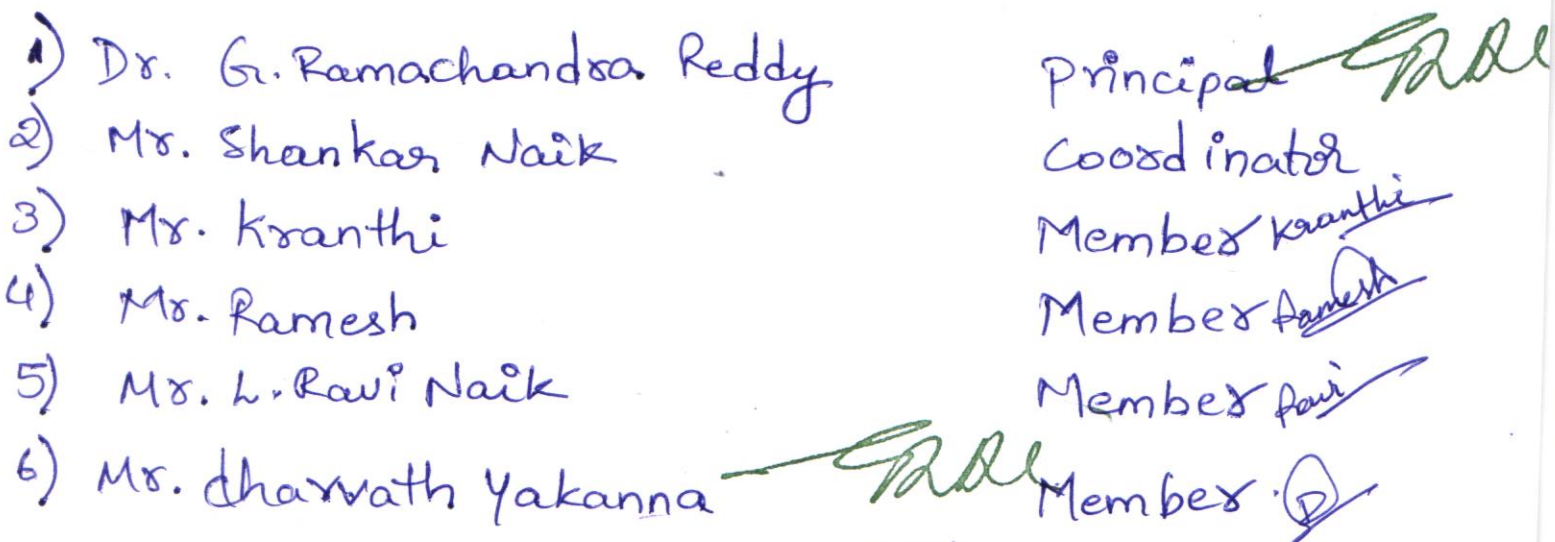 1) Dr. G. Ramachandra Reddy Principal
2) Mr. Shankar Naik Coordinator
3) Mr. Kranthi Member Kranthi
4) Mr. Ramesh Member Ramesh
5) Mr. L. Ravi Naik Member Ravi
6) Mr. dharvath Yakanna Member